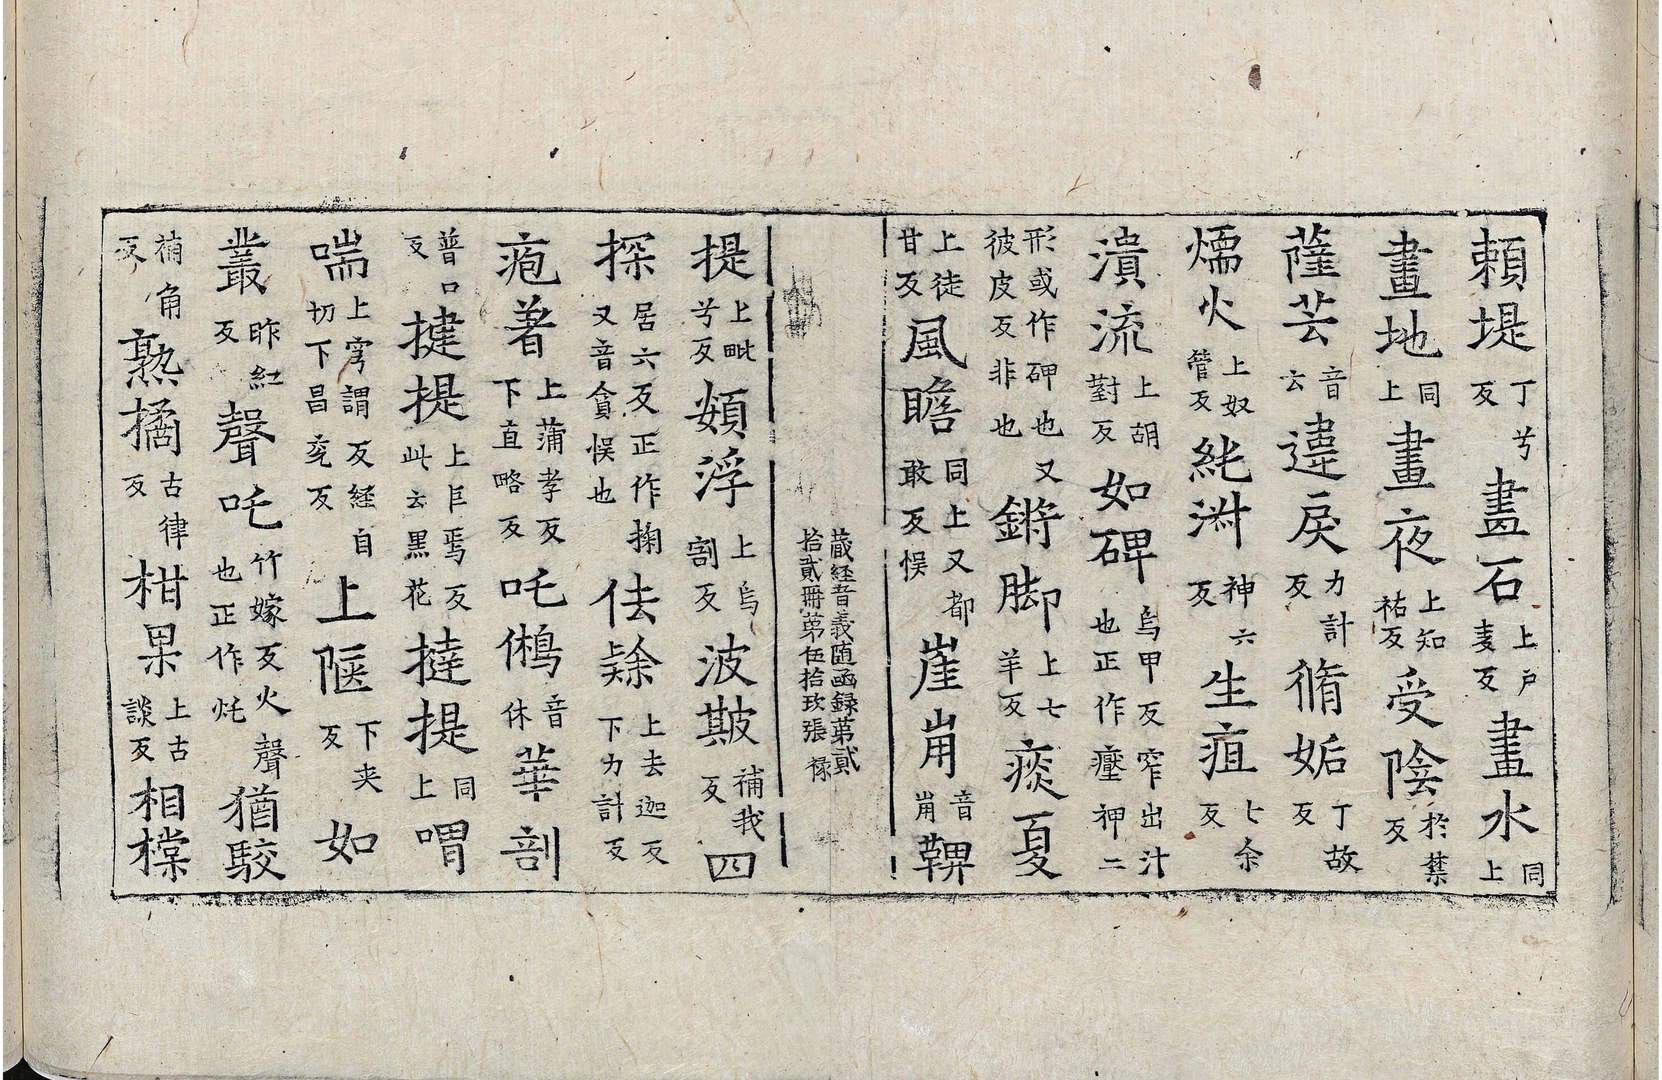 頼堤丁兮反畫石上戶麦反畫水同上
畫地同上畫夜上知祐反受陰於禁反
薩芸音云違戾力計反脩姤丁故反
㷮火上奴管反純淋神六反生疽七余反
潰流上胡對反如碑烏甲反窄出汁也正作壓神二
形或作碑也又彼皮反非也鏘脚上七羊反痰夏
上徒甘反風瞻同上又都敢反悮崖㡯音㡯鞞
藏経音義随函録第貳拾貳冊第伍拾玖張 㯟
提上毗兮反頞浮上烏割反波䫂補我反四
探居六反正作掬又音貪悮也佉䟽上去迦反下力計反
疱著上蒲孝反下直略反吒鵂音休華剖
普口反揵提上巨焉反此云黒花撻提同上喟
喘上穹謂反経自切下昌兖反上陿下夹反如
叢昨紅反聲吒竹嫁反火聲也正作灹猶駮
補角反熟橘古律反柑果上古談反相橖